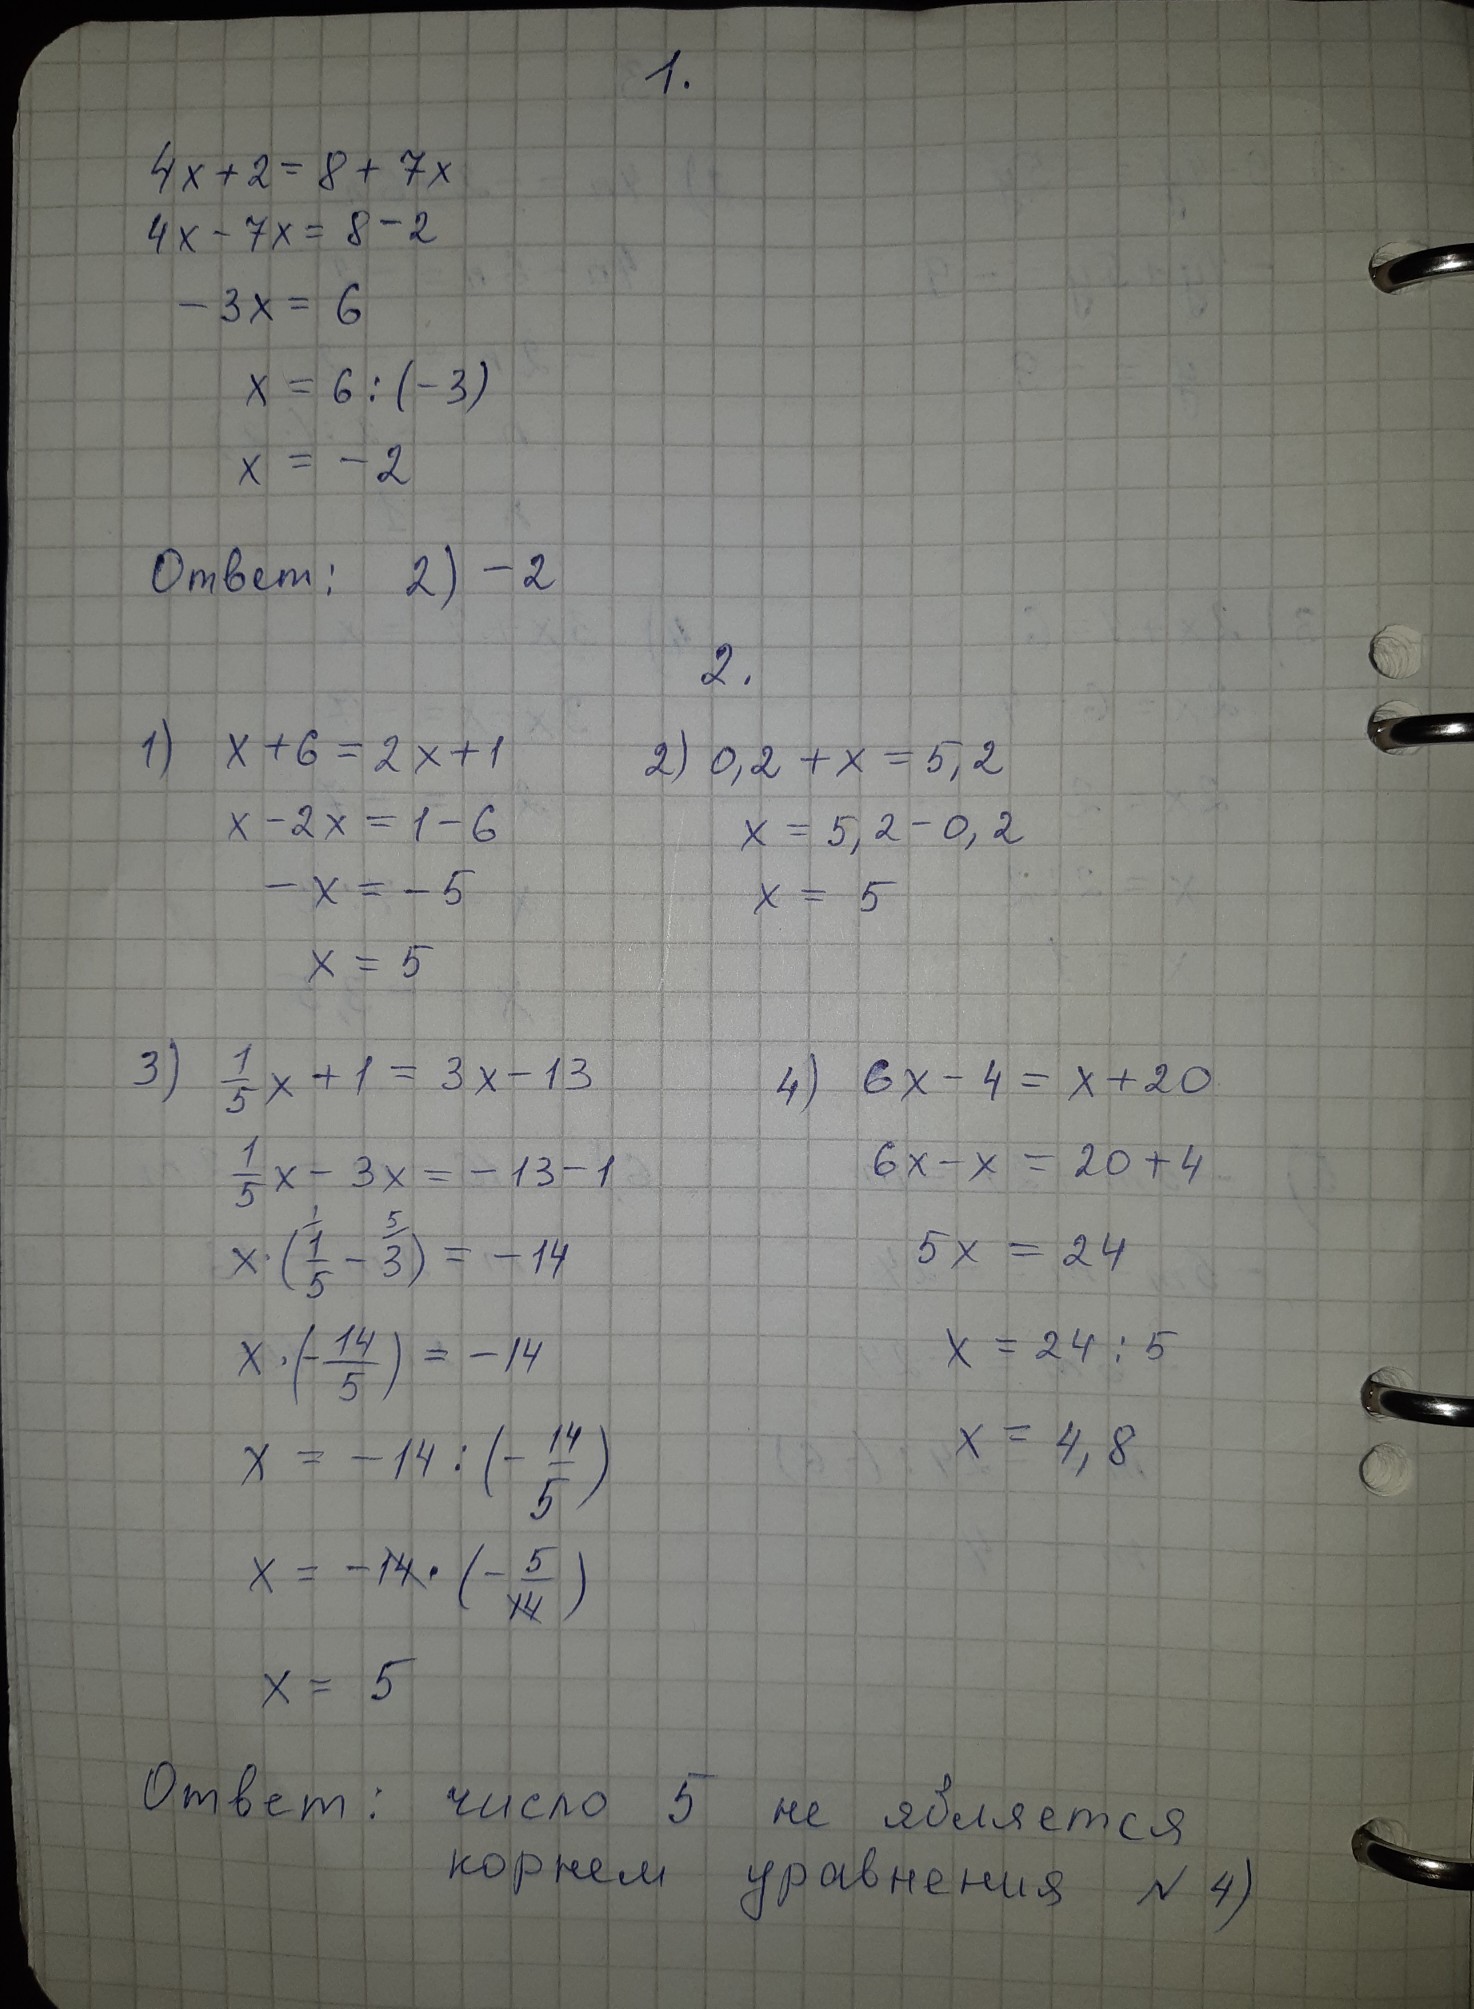 1.
4x+2=8+7x
4x-7x=8-2
-3x=6
x=6:(-3)
x=-2
Ответ: 2) -2
2.
1) x+6=2x+1
x-2x=1-6
-x=-5
x=5
2) 0,2+x=5,2
x=5,2-0,2
x=5
3) 1/5x+1=3x-13
1/5x-3x=-13-1
x·(1/5-3)=-14
x·(-14/5)=-14
x=-14:(-14/5)
x=-14·(-5/14)
x=5
4) 6x-4=x+20
6x-x=20+4
5x=24
x=24:5
x=4,8
Ответ: число 5 не является
корнем уравнения N 4)